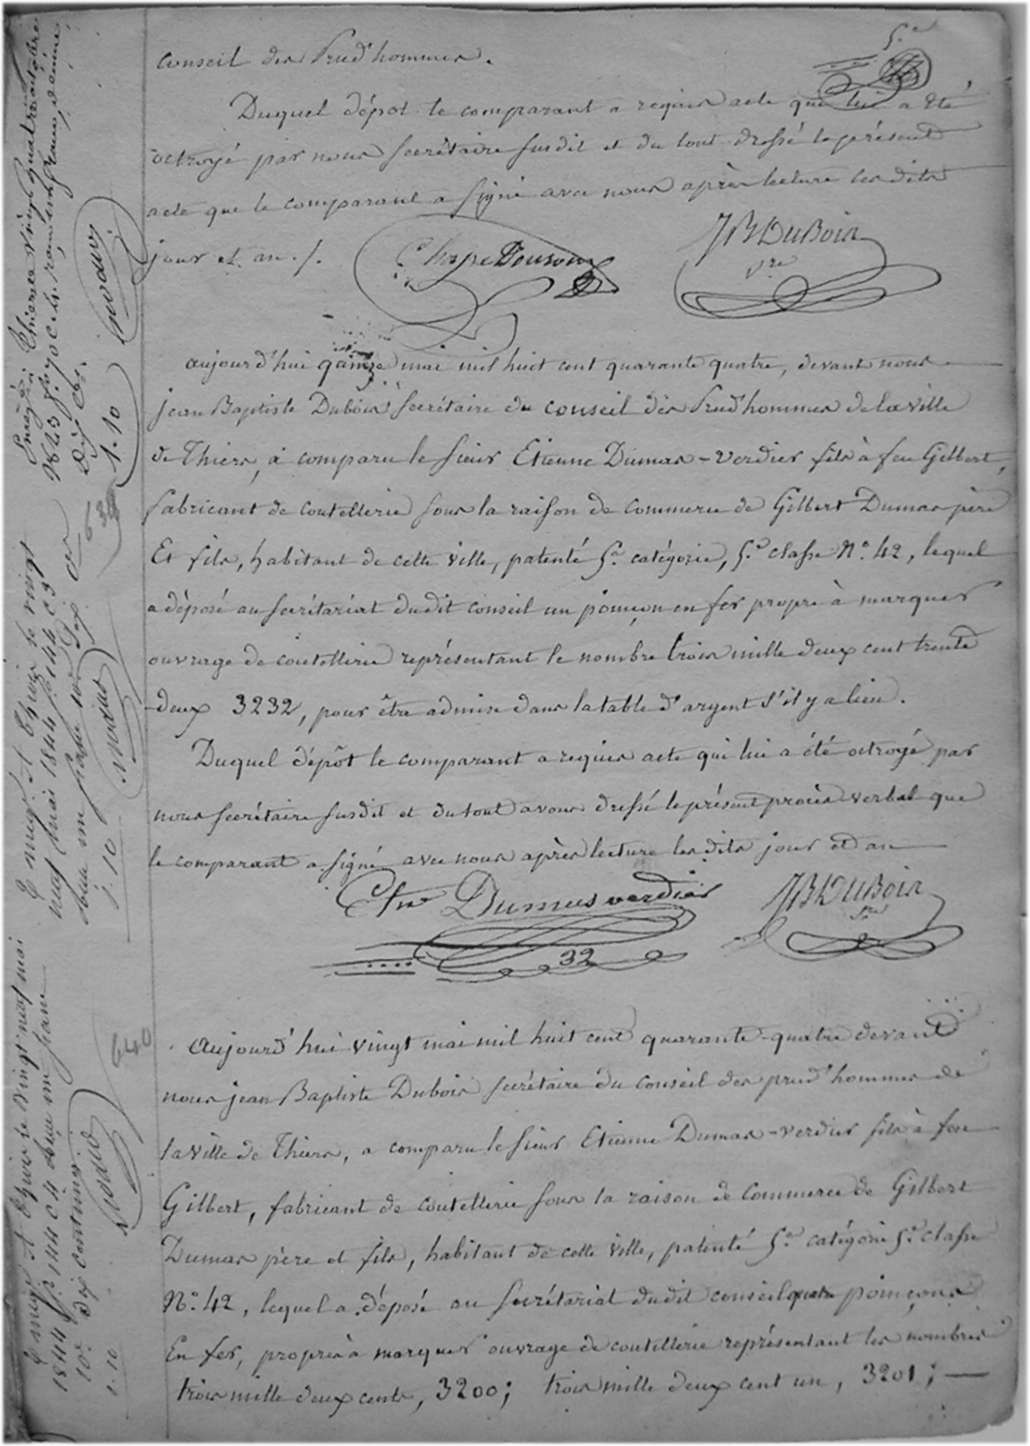 5.e
conseil des Prud'hommes.
Duquel dépot le comparant a requis acte qui lui a été
octroyé par nous secrétaire susdit et du tout dressé le présent
acte que le comparant a signé avec nous après lecture les dits
jour et an ./.
JB DuBois
S.re
aujourd'hui quinze mai mil huit cent quarante quatre, devant nous
jean Baptiste Dubois Secrétaire du conseil des Prud'hommes de la ville
de Thiers, a comparu le sieur Etienne Dumas-Verdier fils à feu Gilbert,
fabricant de coutellerie sous la raison de commerce de Gilbert Dumas père
Et fils, habitant de cette ville, patenté 5.e catégorie, 5.e classe N.o 42, lequel
a déposé au secrétariat dudit conseil un poinçon en fer propre à marquer
ouvrage de coutellerie représentant le nombre trois mille deux cent trente
deux 3232, pour être admis dans la table d'argent s'il y a lieu.
Duquel dépôt le comparant a requis acte qui lui a été octroyé par
nous secrétaire susdit et du tout avons dressé le présent procès verbal que
le comparant a signé avec nous après lecture les dits jour et an
Etne Dumas verdier
JB DuBois
S.re
32
Aujourd'hui vingt mai mil huit cent quarante-quatre devant
nous jean Baptiste Dubois secrétaire du conseil des prud'hommes de
la ville de Thiers, a comparu le sieur Etienne Dumas-verdier fils à feu
Gilbert, fabricant de coutellerie sous la raison de commerce de Gilbert
Dumas père et fils, habitant de cette ville, patenté 5.e catégorie 5.e classe
N.o 42, lequel a déposé au secrétariat dudit conseil quatre poinçons
En fer, propres à marquer ouvrage de coutellerie représentant les nombres
trois mille deux cents, 3200; trois mille deux cent un, 3201;
1.10
639
1.10
640
Enregé A Thiers le vingt neuf mai
1844
dix centimes
1.10